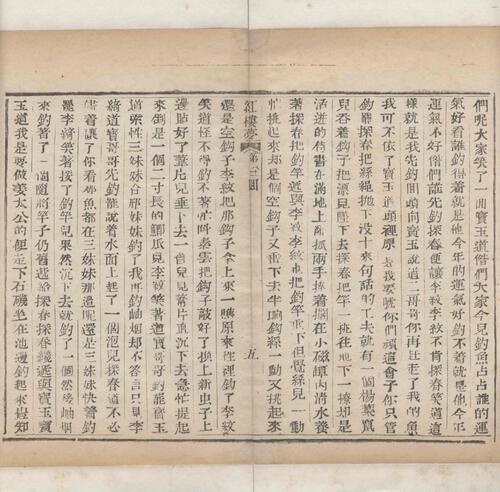 們呢大家笑了一囬寶玉道偺們大家今兒釣魚占占誰的運
氣好看誰釣得着就是他今年的運氣好釣不着就是他今年
運氣不好偺們誰先釣探春便讓李紋李紋不肯探春笑道這
樣就是我先釣囬頭向寶玉說道二哥哥你再赶走了我的魚
我可不依了寶玉道頭裡原是我要唬你們頑這會子你只管
釣罷探春把絲繩拋下沒十來句話的工夫就有一個楊葉竄
兒吞着鈎子把漂兒墜下去探春把竿一挑往地下一撩却是
活迸的侍書在滿地上亂抓兩手捧着擱在小磁罈內清水養
着探春把釣竿遞與李紋李紋也把釣竿垂下但覺絲兒一動
忙挑起來却是個空鈎子又垂下去半晌鈎絲一動又挑起來
紅樓夢 第八十一囬 五
還是空鈎子李紋把那鈎子拿上來一瞧原來往裡鈎了李紋
笑道怪不得釣不着忙呌素雲把鈎子敲好了換上新虫子上
邊貼好了葦片兒垂下去一會兒見葦片直沉下去急忙提起
來倒是一個二寸長的鯽瓜兒李紋笑着道寶哥哥釣罷寶玉
道索性三妹妹合邢妹妹釣了我再釣岫烟却不答言只見李
綺道寶哥哥先釣罷說着水面上起了一個泡兒探春道不必
儘着讓了你看那魚都在三妹妹那邊呢還是三妹妹快着釣
罷李綺笑着接了釣竿兒果然沉下去就釣了一個然後岫烟
來釣着了一個隨將竿子仍舊遞給探春探春纔遞與寶玉寶
玉道我是要做姜太公的便走下石磯坐在池邊釣起來豈知